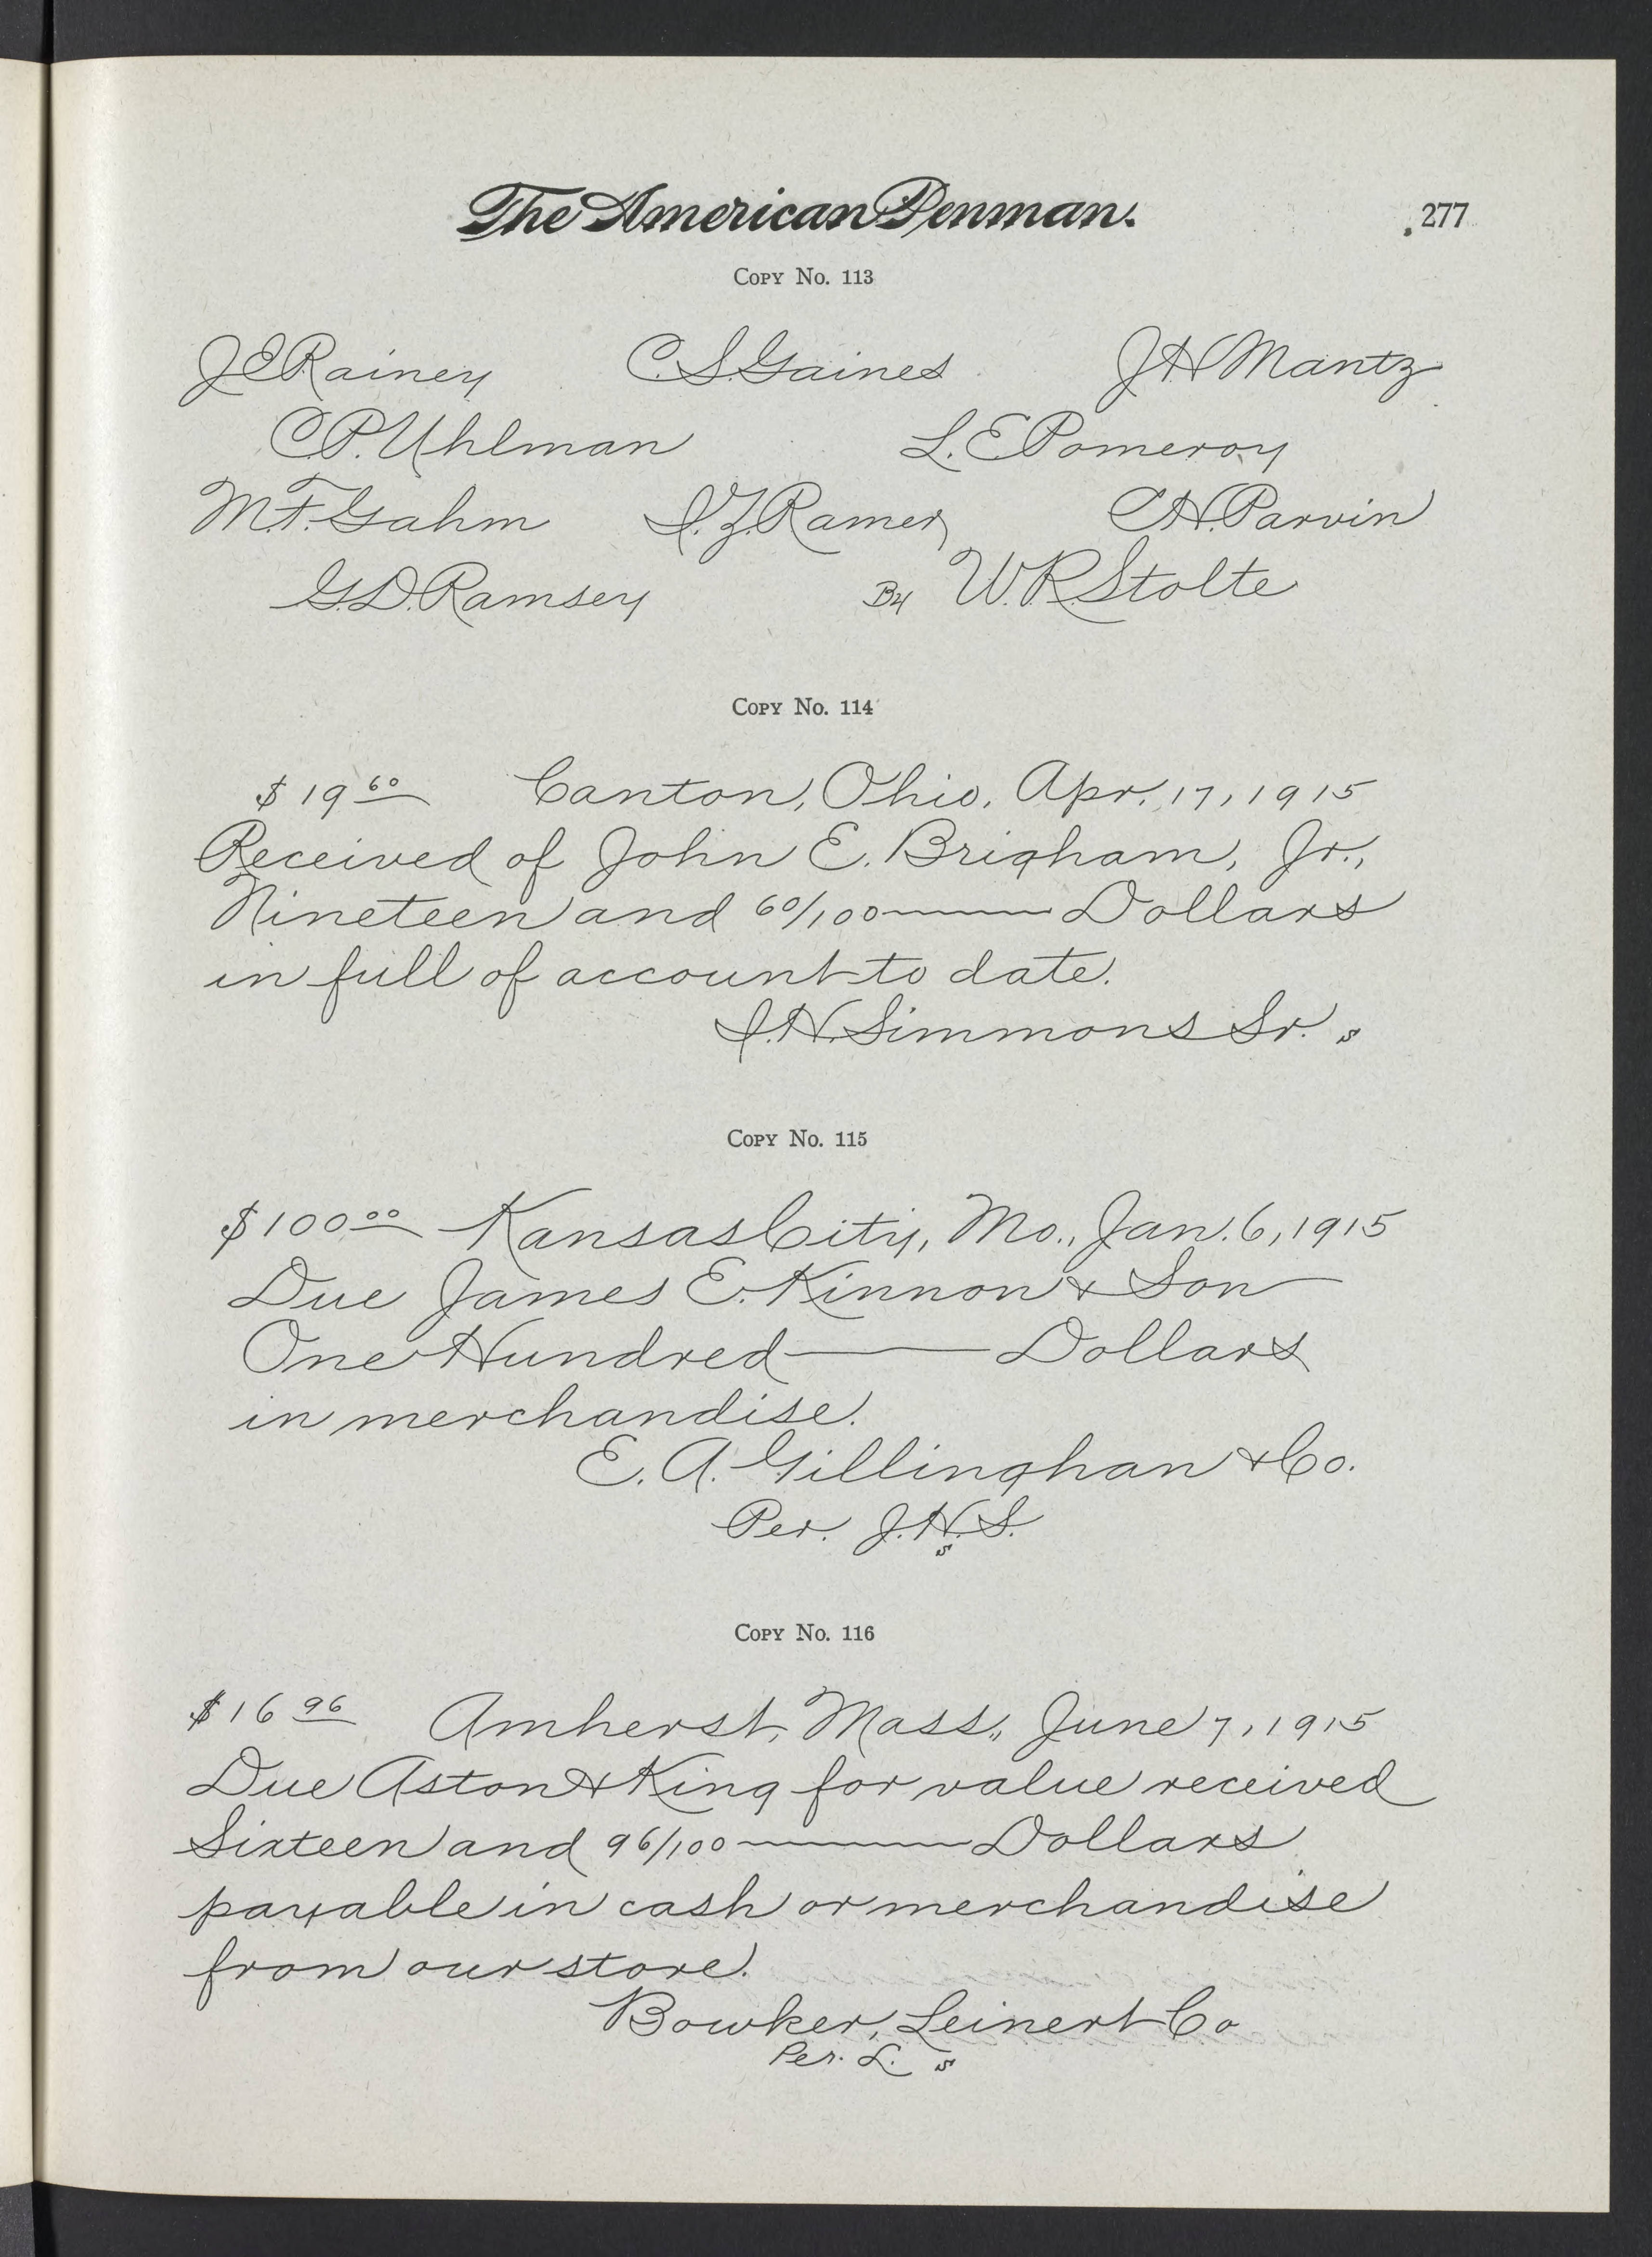 The American Penman.
277
Copy No. 113
J E Rainey C. S. Gaines J H Mantz
C. P. Uhlman L. E Pomeroy
M. F. Gahm I. Z. Ramer C H. Parvin
G. D. Ramsey By W. R. Stolte
Copy No. 114
$19 60 Canton, Ohio, Apr. 17, 1915
Received of John E. Brigham, Jr.,
Nineteen and 60/100 Dollars
in full of account to date.
I. H. Simmons Sr. s
Copy No. 115
$100 00 Kansas City, Mo., Jan. 6, 1915
Due James E. Kinnon & Son
One Hundred Dollars
in merchandise.
E. A. Gillinghan & Co.
Per. J. H. S.
s
Copy No. 116
$16 96 Amherst, Mass., June 7, 1915
Due Aston & King for value received
Sixteen and 96/100 Dollars
payable in cash or merchandise
from our store.
Bowker, Leinert Co
Per. L. s